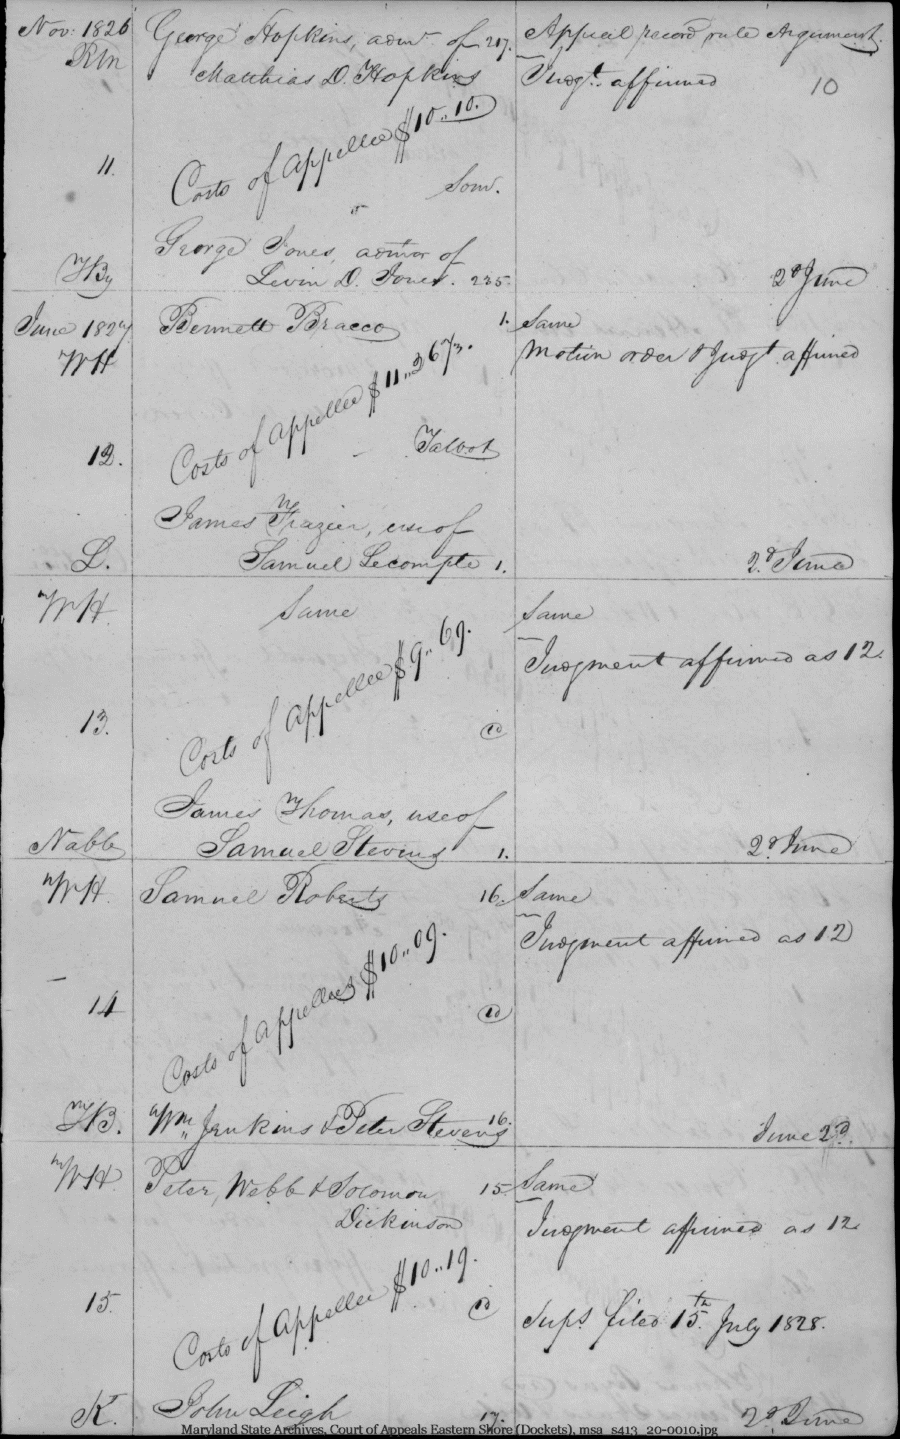 Nov: 1826 George Hopkins, admr of 217. Appeal record, rule Argument.
Matthias D. Hopkins Judgt. affirmed 10
Costs of Appellee $10..10.
11. Som.
vs
George Jones, admor of
Levin D. Jones. 235. 2d June
June 1827 Bennett Bracco 1. Same
WH Motion order & Judgt affirmed
Costs of Appellee $11..36 73.
12. Talbot
James Frazier, use of
L. Samuel Lecompte 1. 2d June
WH Same Same
Judgment affirmed as 12.
Costs of Appellee $9..69.
13. id
James Thomas, use of
Nabb Samuel Stevens 1. 2d June
WH Samuel Roberts 16. Same
Judgment affirmed as 12
Costs of Appellees $10..09.
14 id
TB. Wm. Jenkins & Peter Stevens 16. June 2d.
WH Peter Webb & Solomon 15. Same
Dickinson Judgment affirmed as 12
Costs of Appellee $10..19.
15. id Sups. filed 15th July 1828.
K. John Leigh 17. 2d June
Maryland State Archives, Court of Appeals Eastern Shore (Dockets), msa_s413_20-0010.jpg